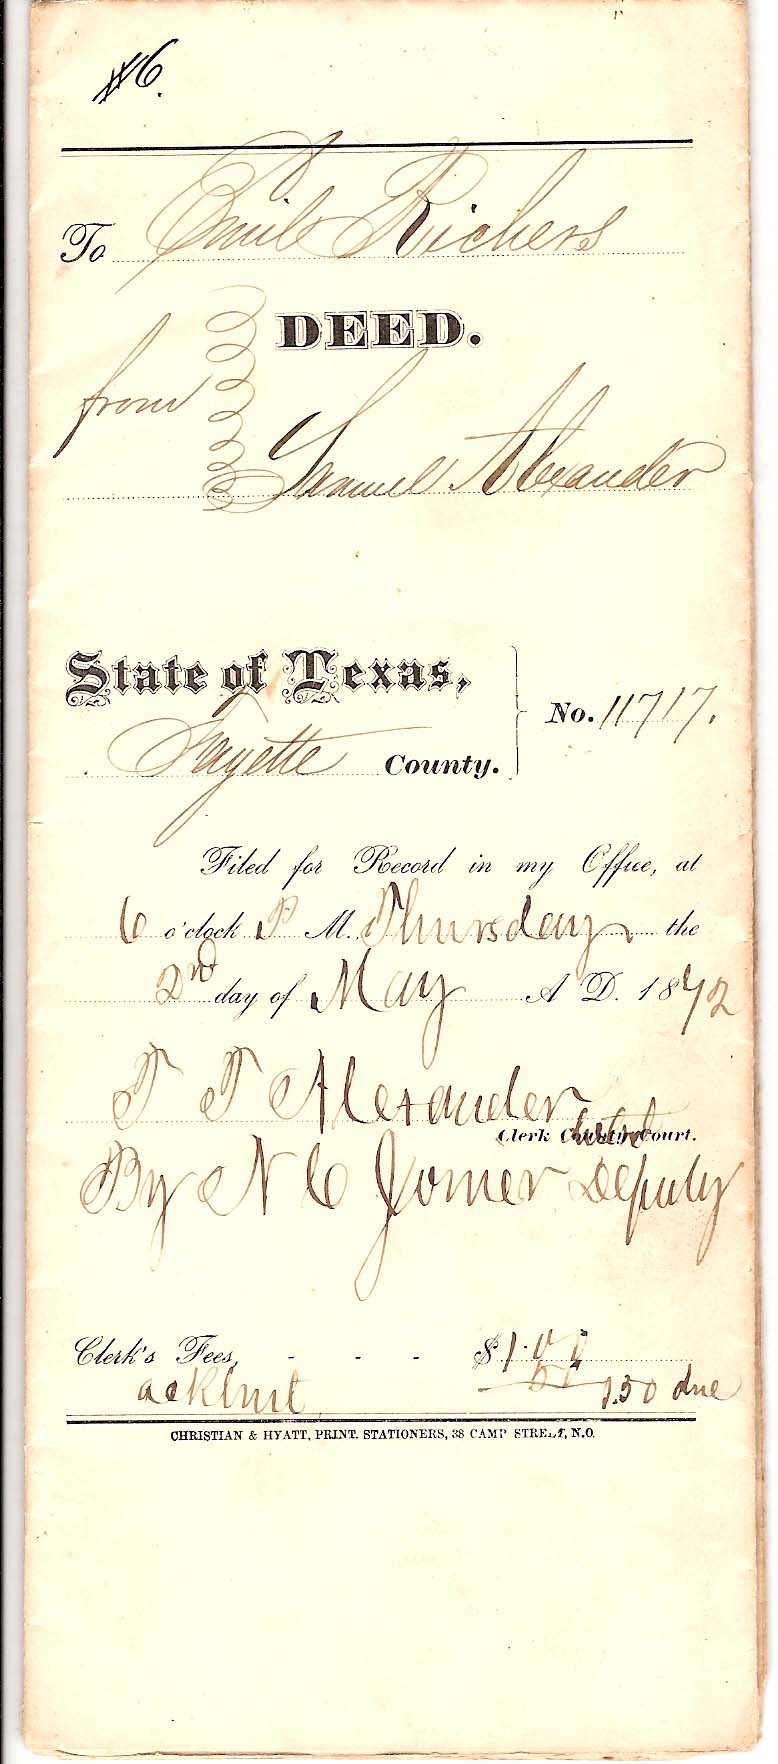 #6.
To Emil Richers
DEED.
from
Samuel Alexander
State of Texas,
Fayette County.
No. 11717.
Filed for Record in my Office, at
6 o'clock P M. Thursday the
2nd day of May A D. 1872
T T Alexander
Clerk County Court.
By N C Joiner Deputy
Clerk's Fees, - - - $1.00
50 1.50 due
CHRISTIAN & HYATT, PRINT. STATIONERS, 38 CAMP STREET, N.O.